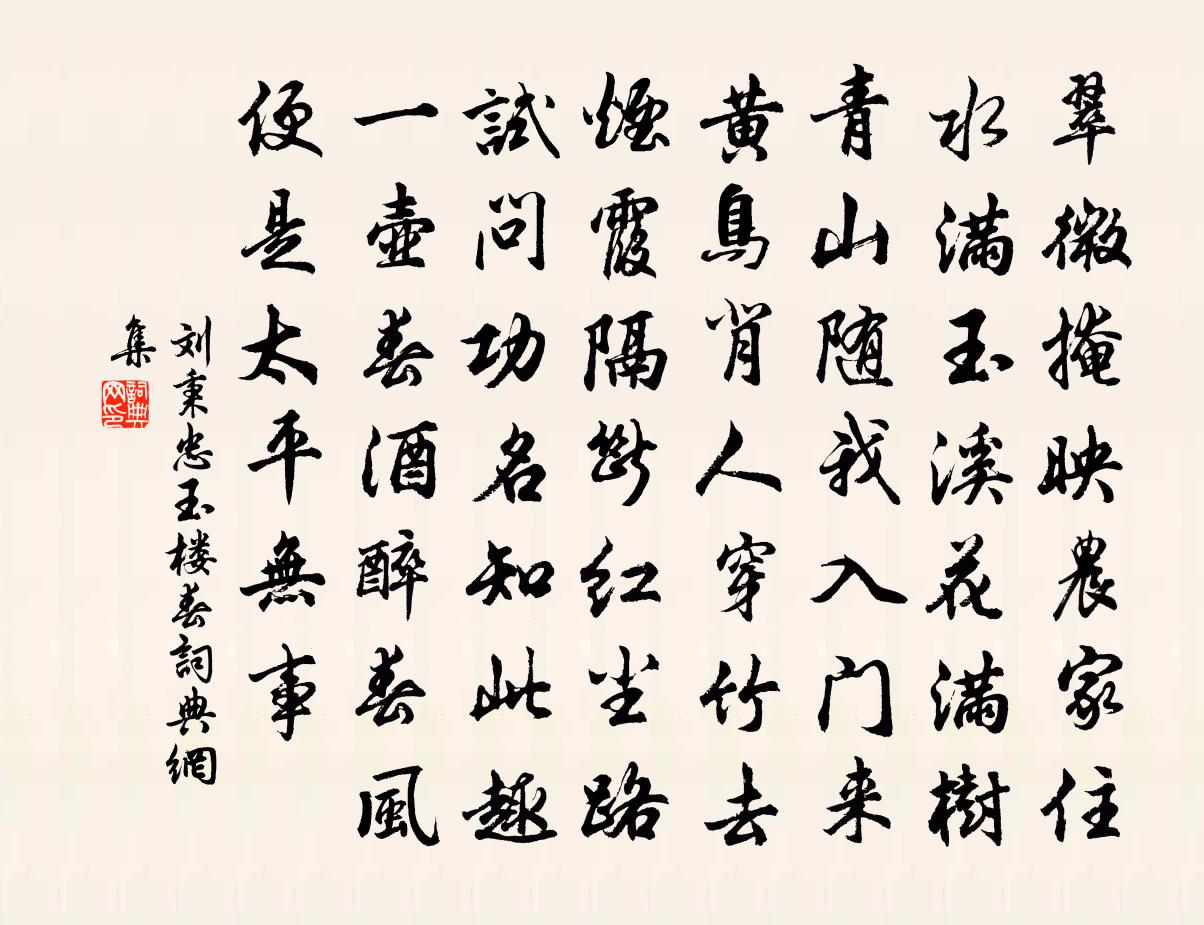 翠微掩映農家住
水满玉溪花满樹
青山随我入门来
黄鳥背人穿竹去
煙霞隔断红尘路
試问功名知此趣
一壺春酒醉春風
便是太平無事
刘秉忠玉楼春詞典網
集
詞典网印